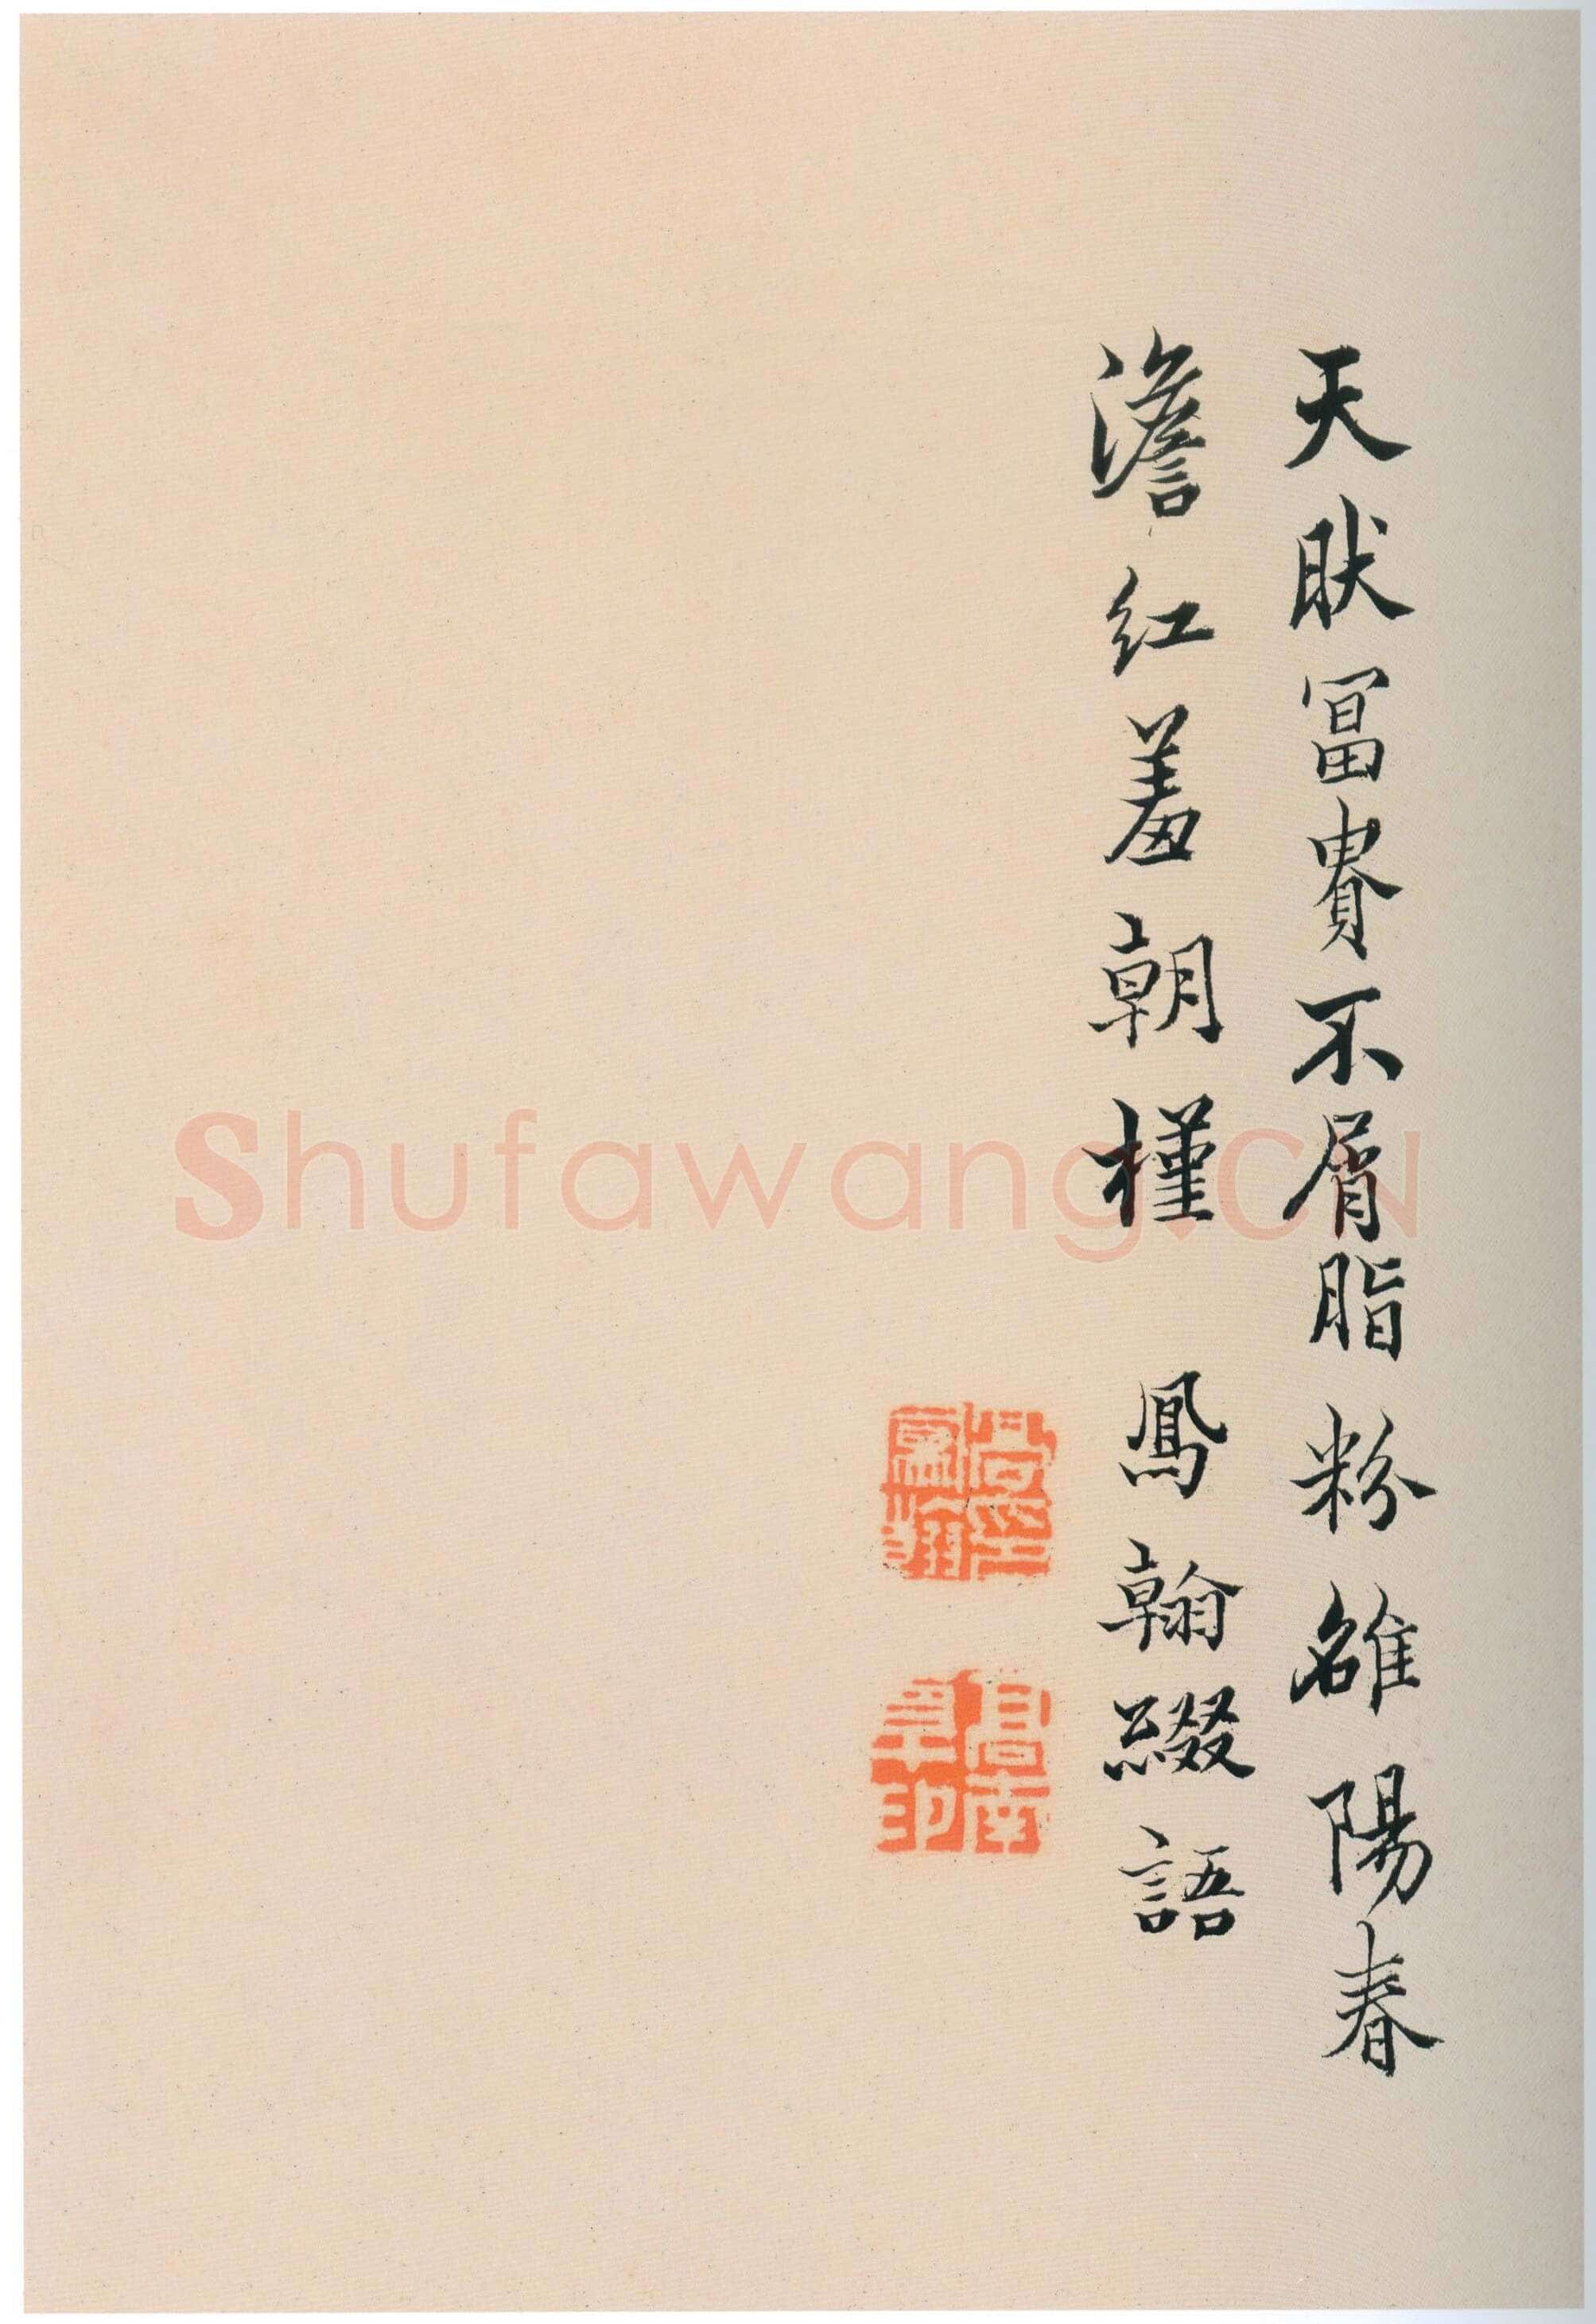 天肰冨貴不屑脂粉雒陽春
澹紅羞朝槿 鳳翰綴語
Shufawang.CN